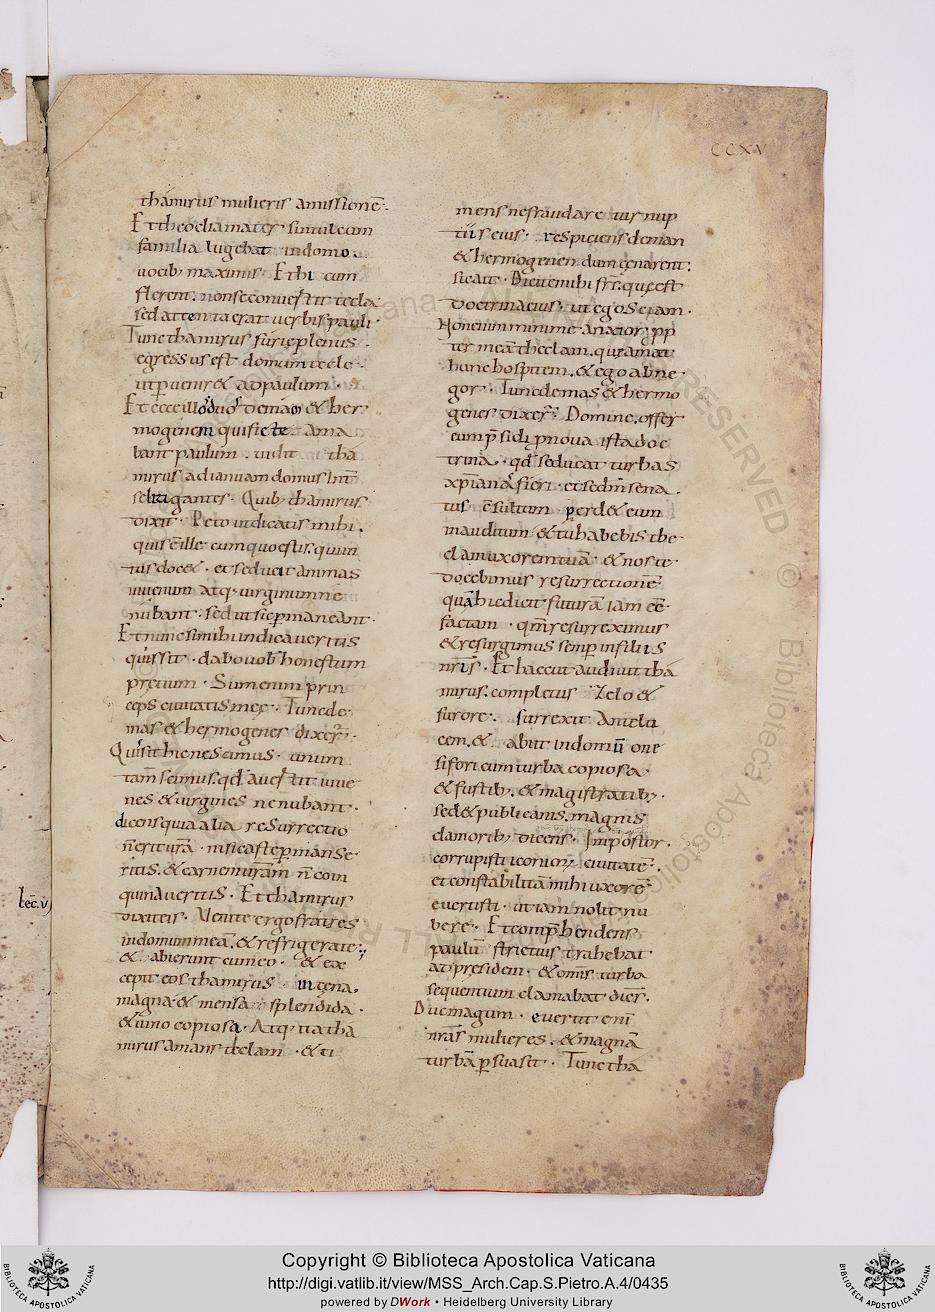 CCXV
thamirus mulieris amissionē·
Et theoclia mater simul cum
familia lugebat in domo
uocib; maximis· Et hi cum
flerent. non se conuertit tecla
sed attenta erat uerbis pauli·
Tunc thamirus furie plenus·
egressus est domum tecle·
ut puenir& ad paulum·
Et ecce illo duo demas & her
mogenen qui ficte ama
bant paulum. uidit tha
mirus ad ianuam domus Int̄
se litigantes· Quib; thamirus
dixit· Peto ut dicatis mihi.
quis ē ille cum quo estis. quiui
uis doc&· et seducit animas
iuuenum atq; uirginum ne
nubant· sed ut sic pmaneant·
Et nunc si mihi indicaueritis
quis sit· dabo uob̄ honestum
pretium· Sum enim prin
ceps ciuitatis meę· Tunc de
mas & hermogenes dixer̄·
Quis sit hic nescimus· unum
tam̄ scimus. qd̄ auertit iuue
nes & uirgines ne nubant·
dicens quia alia resurrectio
n̄ erit urā· nisi caste pmanse
ritis. & carnem urām n̄ coin
quinaueritis· Et thamirus
dixit eis· Uenite ergo fratres
in domum meā. & refrigerate·
& abierunt cum eo· & ex
cepit eos thamirus· in cena.
magna & mensa splendida·
& uino copiosa· Atq; ita tha
mirus amans theclam· & ti
mens ne fraudare tur nup
tiis eius· respiciens deman
& hermogenen dum cenarent.
sic ait· Dicite mihi frs̄. quę est
doctrina eius· ut ego sciam·
Non enim minime anxior; pp
ter meā theclam. quia amat
hunc hospitem. & ego abne
gor· Tunc demas & hermo
genes dixer̄· Domine, offer
eum p̄sidi p noua ista doc
trina· qd̄ seducat turbas
xpianā fieri· et sedm̄ sena
tus c̄sultum perd& eum
inauditum & tu habebis the
clam uxorem tuā· & nos te
docebimus resurrectionē·
quā hic dicit futurā iam ēē
factam· qm̄ resurreximus
& resurgimus semp in filiis
nrīs· Et haec ut audiuit thā
mirus. completus Zelo &
furore· surrexit Antelu
cem. & abiit in domū one
sifori cum turba copiosa·
& fustib;. & magistratib;·
sed & publicanis. magnis
clamorib; dicens· Impostor·
corrupisti iconior; ciuitatē·
et constabilitā mihi uxorē
euertisti· ut iam nolit nu
bere· Et comp̄hendens
paulū strictius trahebat
ad presidem· & omīs turba
sequentium clamabat dicīs·
Duc magum· euertit enī
nrās mulieres. & magnā
turbā psuasit· Tunc thā
lec̄. v
Copyright © Biblioteca Apostolica Vaticana
http://digi.vatlib.it/view/MSS_Arch.Cap.S.Pietro.A.4/0435
powered by DWork • Heidelberg University Library
BIBLIOTECA APOSTOLICA VATICANA
BIBLIOTECA APOSTOLICA VATICANA